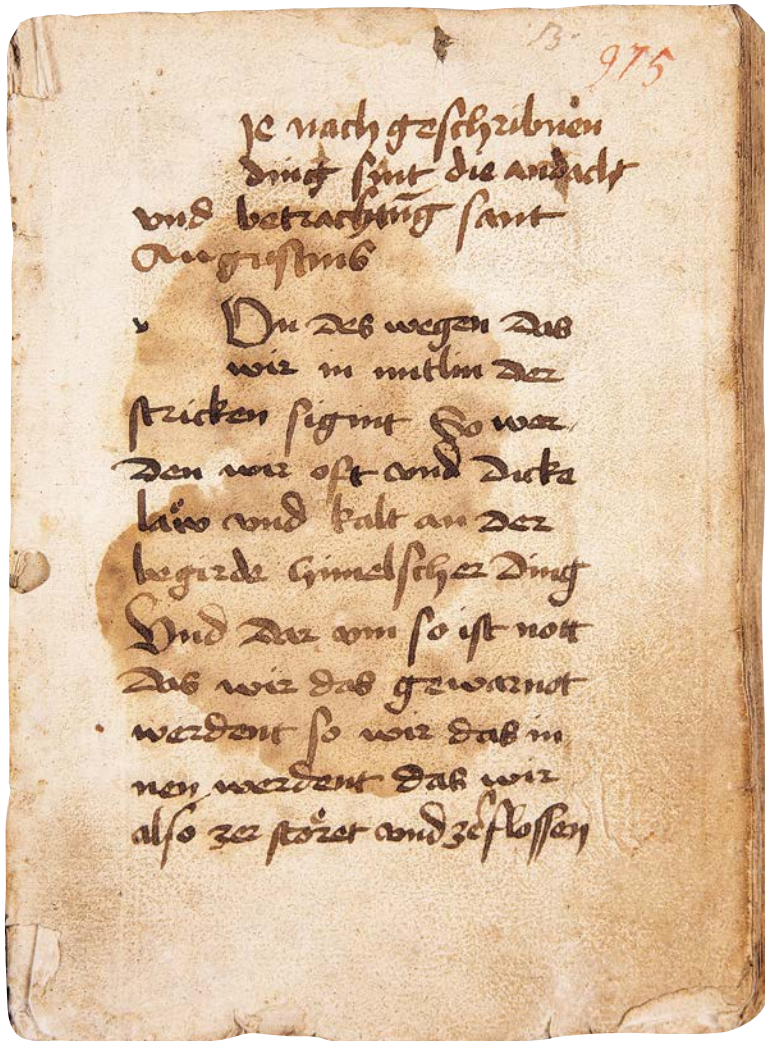 975
Je nach geschribnen
ding sint die andacht
vnd betrachtūg sant
Augustins
v Von des wegen das
wir in mitlin der
stricken sigint So wer
den wir oft vnd dicke
låw vnd kalt an der
begirde himelscher ding
Vnd dar vm so ist nott
das wir das gewarnot
werdent so wir das in
nen werdent das wir
also zer störet vnd zerflossen